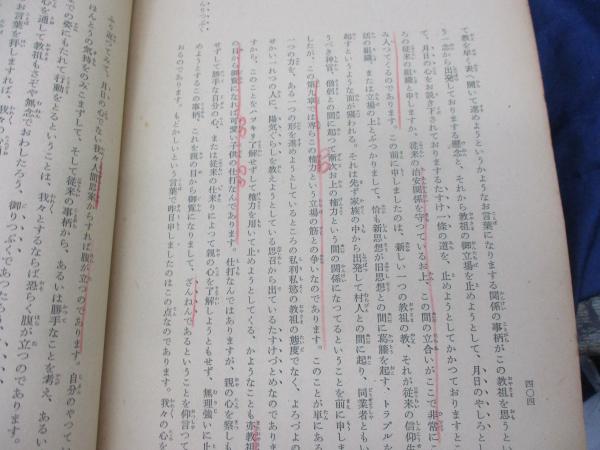 四〇四
て教を早く表へ開いて進めようというかようなお言葉になりまする関係の事柄がこの教祖を思うとい
う一念から出発しておりまする懸念と、それから教祖の御立場を止めようとして、月日のやしろとし
て、月日の心をお説き下されておりまするたすけ一条の道を、止めようとしてかかつておりますとこ
ろの従来の組織と申しますか、従来の治安関係を守つているお上、この間の立合いがここで非常にこ
み入つてくるのであります。この前に申しましたのは、新しい一つの教祖の教、それが従来の信仰生
活の組織、または立場の上とぶつかりまして、恰も新思想が旧思想との間に葛藤を起す、トラブルを
起すというような面が襲われる。それは先ず家族の中から出発して村人との間に起り、同業者ともい
うべき神官、僧侶との間に起つて漸次お上の権力という間の関係になつてるということを前に申しま
したが、この第九章では専らこの権力という立場の筋との争いなのであります。このことが単にある
一つの力を、ある一つの形を進めようとしているところの私利私慾の教祖の態度でなく、よろづよの
せかい一れつの人に、陽気ぐらしを教えようとしている思召から出ているたすけづとめなのでありま
すから、このことをハツキリ了解せずして権力を用いて止めようとしてくる、かようなことも亦教祖
の目から御覧になれば可愛い子供の仕打なんであります。仕打なんではありますが、親の心を察しも
せずして勝手な自分の心、または従来の仕来りによつて親の心を了解しようともせず、無理強いに止
めようとするこの事柄、これを親の目から御覧になりまして、ざんねんであるということを仰言つて
おるのであります。もどかしいという言葉で昨日申しましたのはこの点なのであります。我々の心を
ふり返つてみて、月日の心のない我々人間思案からすれば腹が立つのであります。自分のやつてい
ほんとうの気持ちをのみこまずして、そして従来の事柄から、あるいは勝手なことを考え、あるい
での姿にもたれて行動をとるということは、我々とするならば恐らく腹が立つのであります。
心を通して教祖もさぞや無念でおわしたろう、御りつぷくであつたろう
お言葉を拝しますれば、我々の